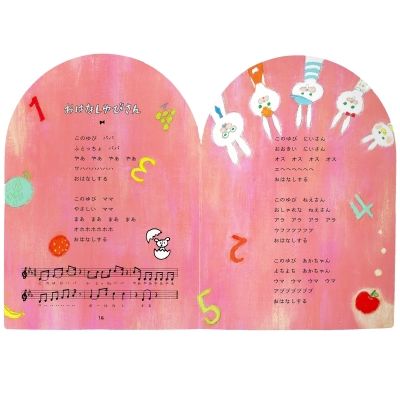 1
おはなしゆびさん
このゆび パパ
ふとっちょ パパ
やあ やあ やあ やあ
ワハハハハハハ
おはなしする
3
このゆび ママ
やさしい ママ
まあ まあ まあ まあ
オホホホホホホ
おはなしする
16
このゆび にいさん
おおきい にいさん
オス オス オス オス
エヘヘヘヘヘヘ
おはなしする
4
このゆび ねえさん
おしゃれな ねえさん
アラ アラ アラ アラ
ウフフフフフフ
おはなしする
2
このゆび あかちゃん
よちよち あかちゃん
ウマ ウマ ウマ ウマ
アブブブブブブ
おはなしする
5